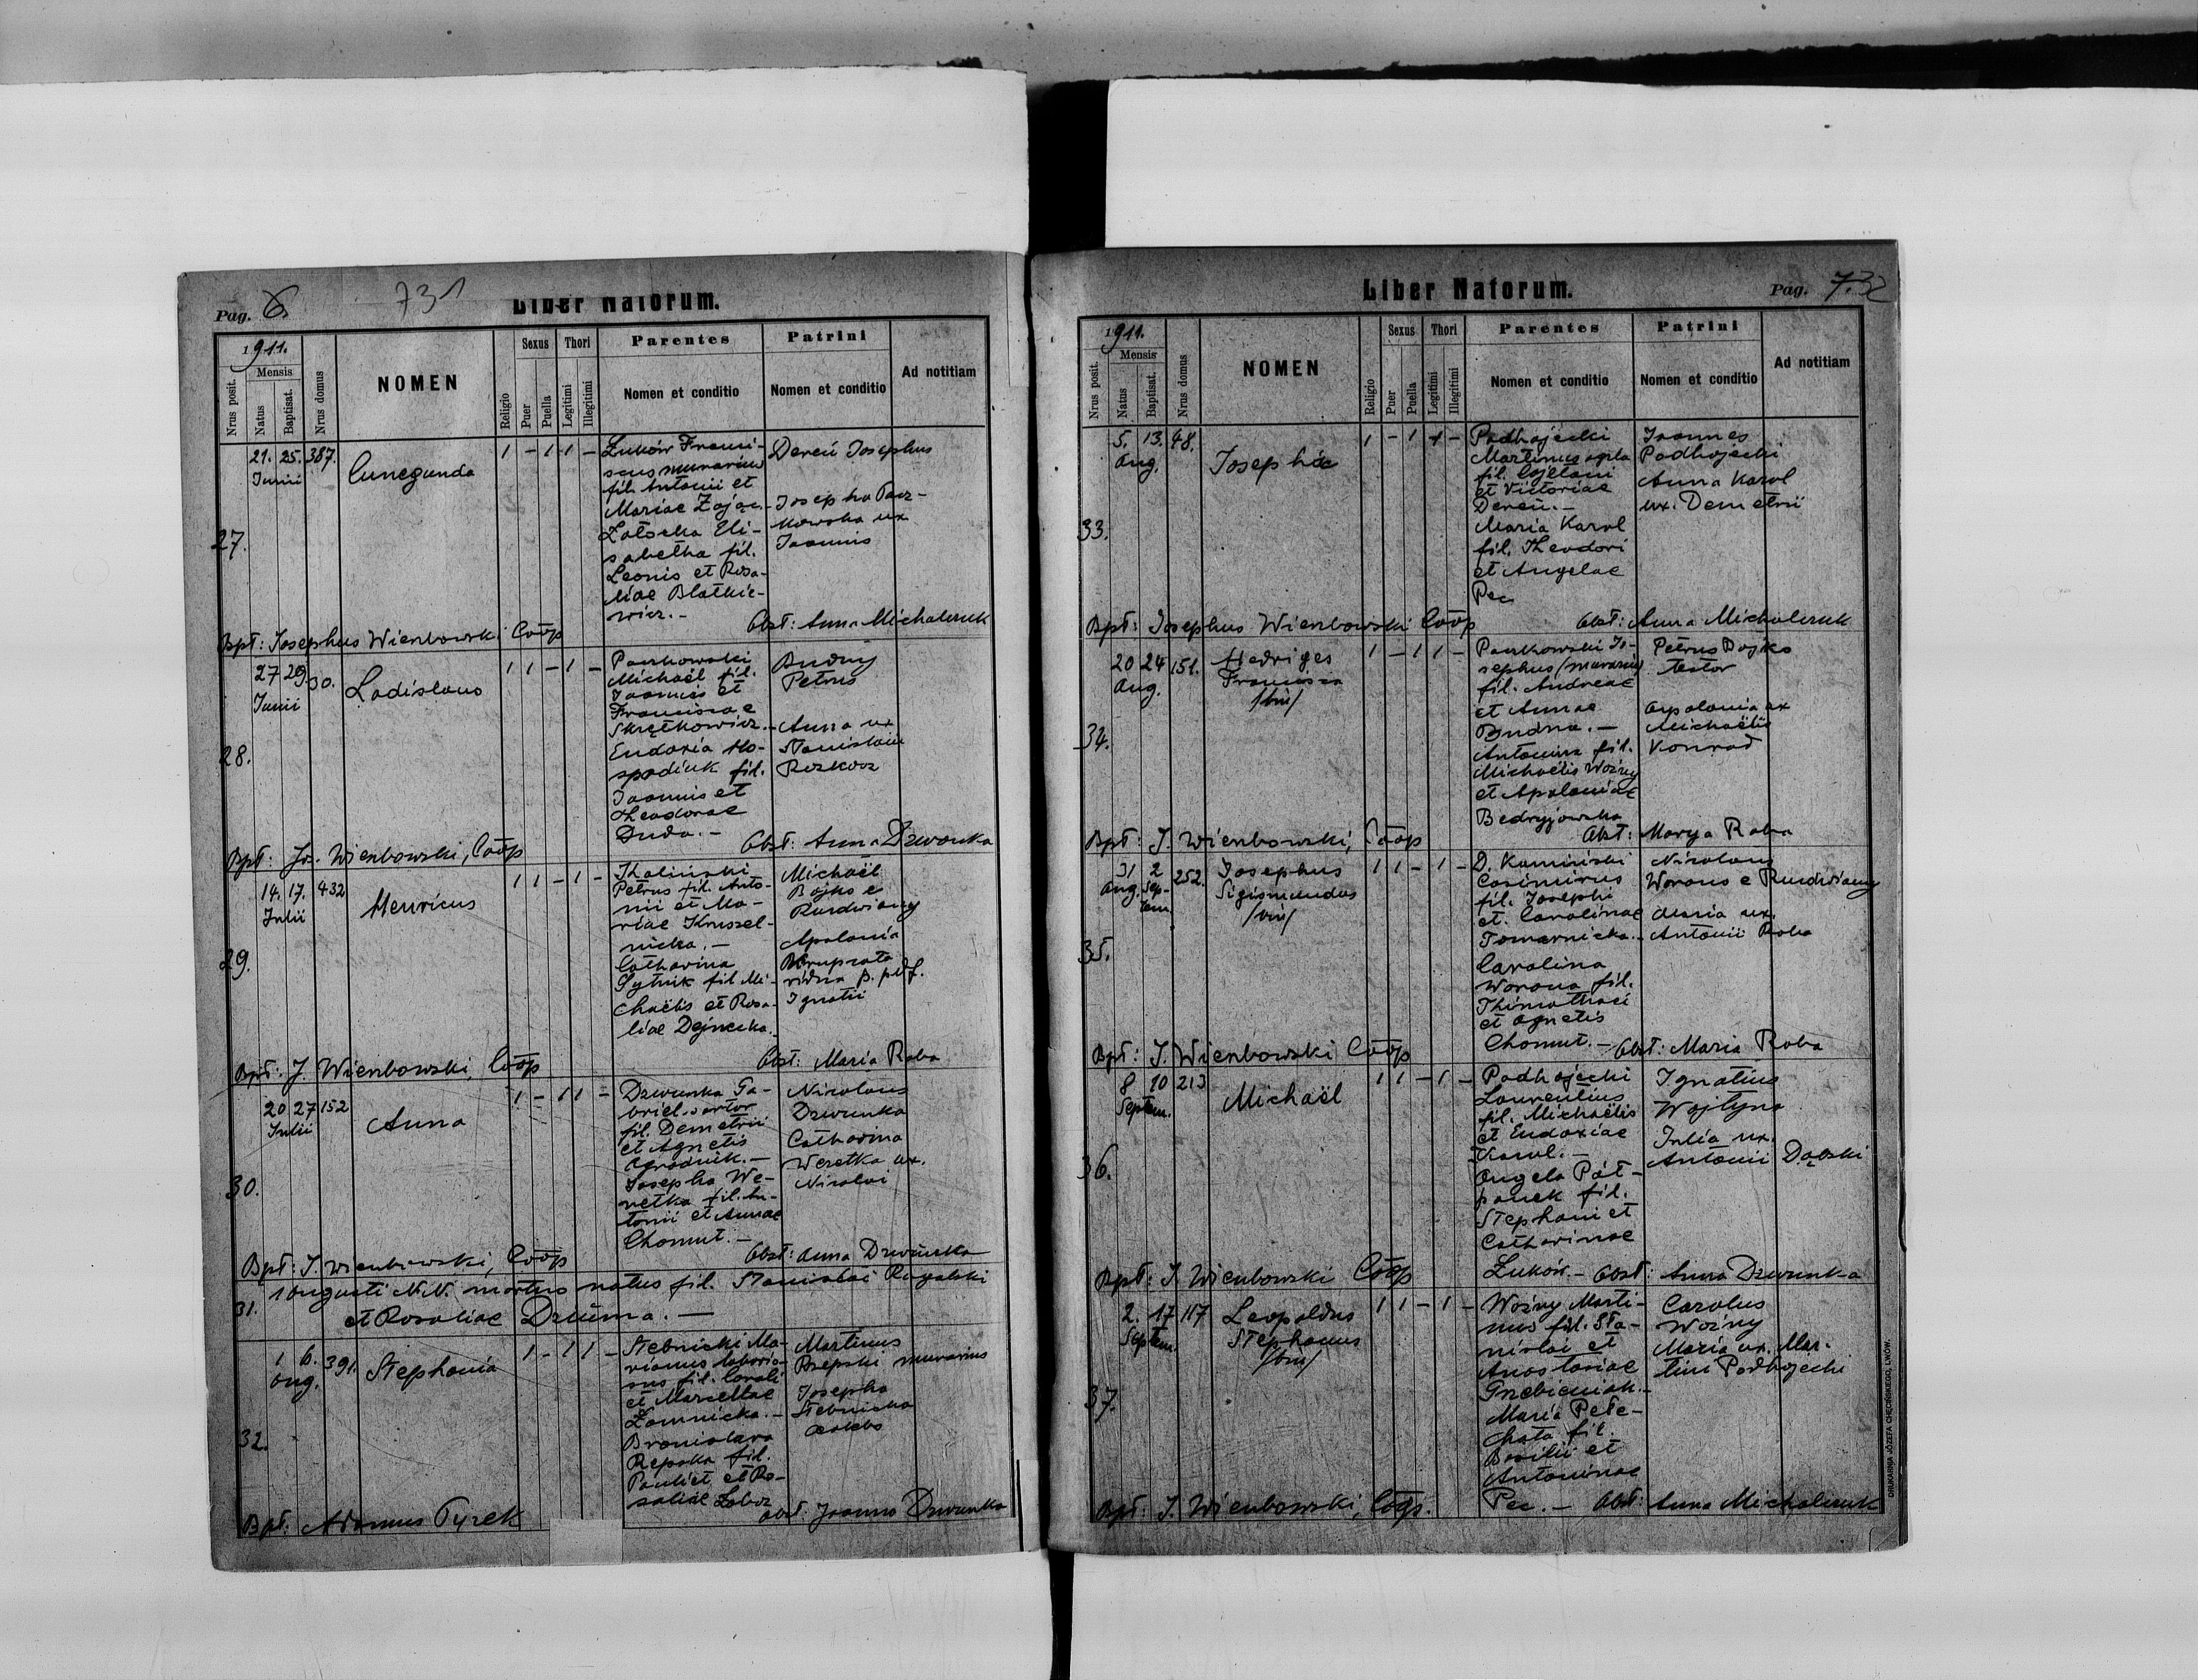 Pag. 6
731
Liber Natorum.
1911.
Nrus posit.
Mensis
Natus
Baptisat.
Nrus domus
NOMEN
Religio
Sexus
Puer
Puella
Thori
Legitimi
Illegitimi
Parentes
Nomen et conditio
Patrini
Nomen et conditio
Ad notitiam
27.
21. 25. 387.
Junii
Cunegunda
1 - 1 1 -
Łuków Franci-
scus murarius
fil. Antonii et
Mariae Zając.-
Zatocka Eli-
sabetha fil.
Leonis et Rosa-
liae Blatkie-
wicz.-
Dereń Josephus
Josepha Pacz-
kowska ux
Joannis
Bpt: Josephus Wierzbowski Coop
Obst: Anna Michalczuk
28.
27 29 30.
Junii
Ladislaus
1 1 - 1 -
Paczkowski
Michaël fil.
Joannis et
Franciscae
Skrętkowicz.-
Eudoxia Ho-
spodiuk fil.
Joannis et
Theodorae
Duda.-
Budny
Petrus
Anna ux
Stanislai
Bpt: Jos. Wierzbowski, Coop
Obst: Anna Dzwonka
29.
14. 17. 432
Julii
Henricus
1 1 - 1 -
Kaliński
Petrus fil. Anto-
nii et Ma-
riae Kruszel-
nicka.-
Catharina
Sytnik fil. Mi-
chaëlis et Rosa-
liae Dejneka.
Michaël
Bojko e
Rurdwiany
Apolonia
vidua p. pdf.
Ignatii
Bpt: J. Wierzbowski, Coop
Obst: Maria Raba
30.
20 27 152
Julii
Anna
1 - 1 1 -
Dzwonka Ga-
briel sartor
fil. Demetrii
et Agnetis
Ogrodnik.-
Josepha We-
retka fil. An-
tonii et Annae
Chomut.-
Nicolaus
Dzwonka
Catharina
Weretka ux.
Nicolai
Bpt: J. Wierzbowski, Coop
Obst: Anna Dzwonka
31.
1 Augusti N.N. mortuo natus fil. Stanislai Rogalski
et Rosaliae Dziuma.-
32.
1 6. 391.
Aug.
Stephania
1 - 1 1 -
Stebnicki Ma-
rianus laboria-
sus fil. Caroli
et Marcellae
Łomnicka.-
Bronislava
Repska fil.
Pauli et et Ro-
saliae Łoboz
Martinus
Rzepski murarius
Josepha
Stebnicka
caelebs
Bpt: Adamus Tyrek
Obst: Joanna Dzwonka
Liber Natorum.
Pag. 7.
732
1911.
Nrus posit.
Mensis
Natus
Baptisat.
Nrus domus
NOMEN
Religio
Sexus
Puer
Puella
Thori
Legitimi
Illegitimi
Parentes
Nomen et conditio
Patrini
Nomen et conditio
Ad notitiam
33.
5. 13. 48.
Aug.
Josepha
1 - 1 1 -
Podhajecki
Martinus agrla
fil. Cajetani
et Victoriae
Dereń.-
Maria Karol
fil. Theodori
et Angelae
Pec
Joannes
Podhajecki
Anna Karol
ux. Demetrii
Bpt: Josephus Wierzbowski Coop
Obst: Anna Michalczuk
34.
20 24 151.
Aug.
Hedviges
Francisca
/bin/
1 - 1 1 -
Paczkowski Jo-
sephus /murarius/
fil. Andreae
et Annae
Budna.-
Antonina fil.
Michaëlis Woźny
et Apoloniae
Bedryjowska
Petrus Bojko
Apolonia ux
Michaëlis
Konrad
Bpt: J. Wierzbowski, Coop
Obst: Marya Raba
35.
31 2 252.
Aug. Sep-
tem.
Josephus
Sigismundus
/bin/
1 1 - 1 -
D. Kamiński
Casimirus
fil. Josephi
et Carolinae
Tomarnicka.-
Carolina
Worona fil.
Thimothaei
et Agnetis
Chomut.-
Nicolaus
Worona e Rurdwiany
Maria ux.
Antonii Raba
Bpt: J. Wierzbowski Coop
Obst: Maria Raba
36.
8 10 213
Septem.
Michaël
1 1 - 1 -
Podhajecki
Laurentius
fil. Michaëlis
et Eudoxiae
Karol.-
Angela Pół-
panek fil.
Stephani et
Catharinae
Łuków.-
Ignatius
Wojtyna
Julia ux.
Antonii Dąbski
Bpt: J. Wierzbowski Coop
Obst: Anna Dzwonka
37.
2. 17 117
Septem.
Leopoldus
Stephanus
/bin/
1 1 - 1 -
Woźny Marti-
nus fil. Sta-
nislai et
Anastasiae
Grzebieniak.-
Maria Pełe-
chata fil.
Basilii et
Antoninae
Pec.-
Carolus
Woźny
Maria ux. Mar-
tini Podhajecki
Bpt: J. Wierzbowski, Coop.
Obst: Anna Michalczuk
DRUKARNIA JÓZEFA CHĘCIŃSKIEGO, LWÓW.